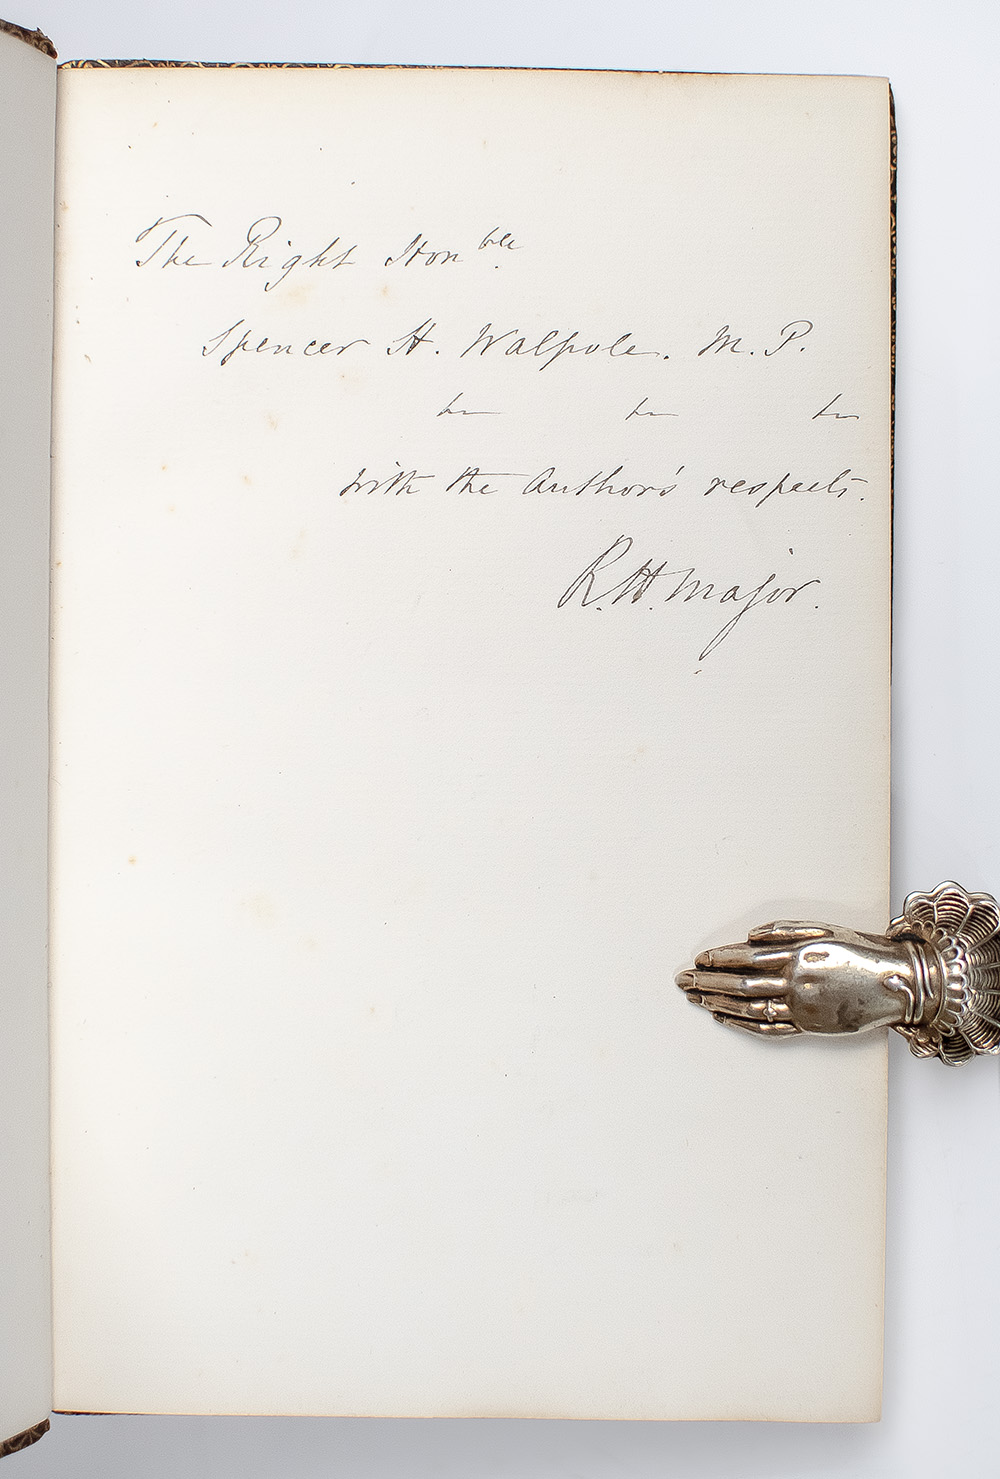 The Right Hon ble.
Spencer H. Walpole. M. P.
with the Author's respects.
R. H. Major.